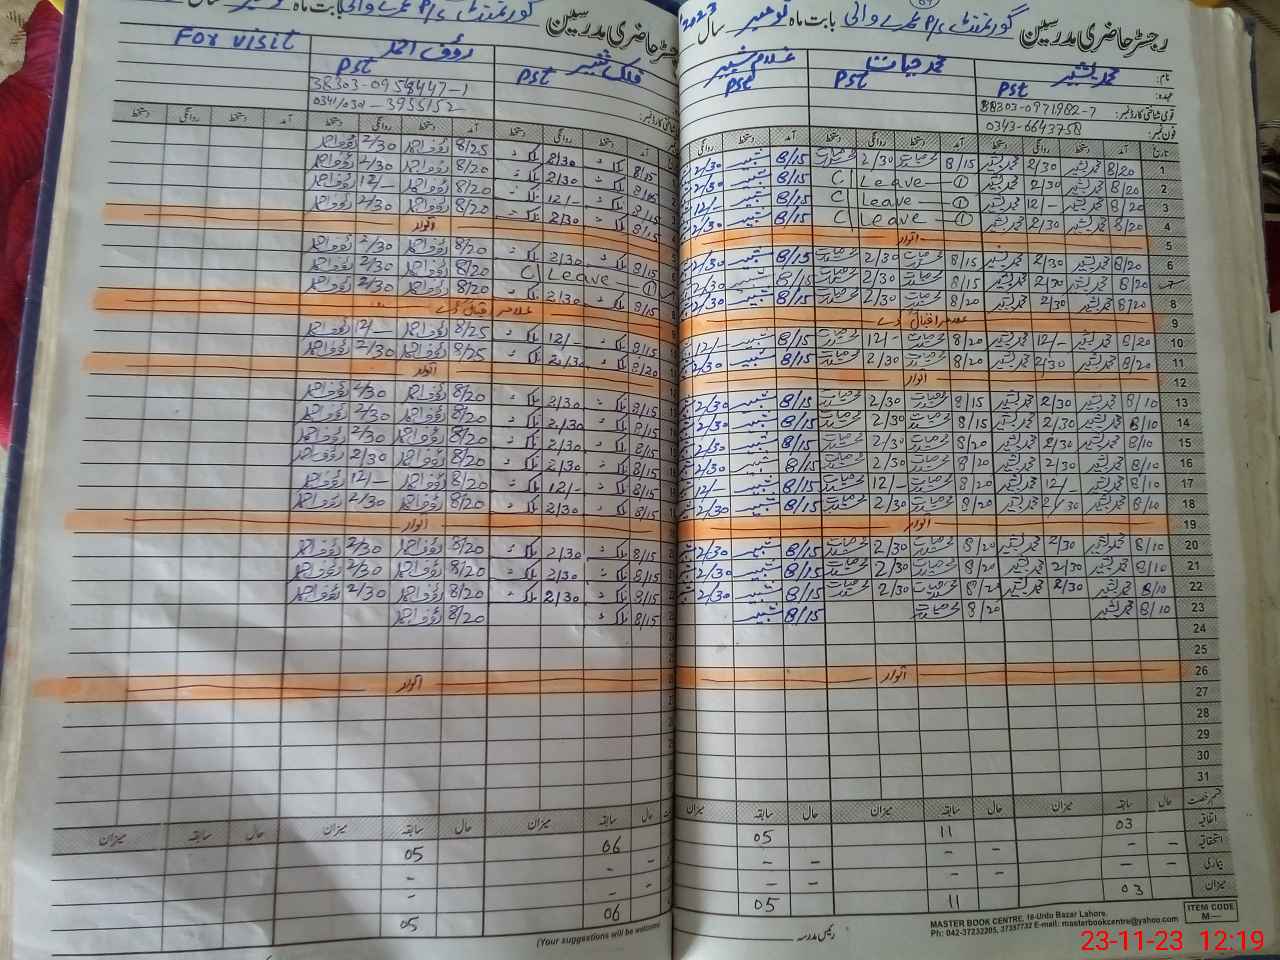 رجسٹر حاضری مدرسین گورنمنٹ P/S بابت ماہ نومبر سال 2023
نام: محمد بشیر محمد حیات غلام شبیر
عہدہ: Pst Pst Pst
قومی شناختی کارڈ نمبر: 38303-0971982-7
فون نمبر: 0343-6643758
تاریخ آمد دستخط روانگی دستخط آمد دستخط روانگی دستخط آمد دستخط روانگی
1 8/20 محمد بشیر 2/30 محمد بشیر 8/15 محمد حیات 2/30 محمد حیات 8/15 شبیر 2/30
2 8/20 محمد بشیر 2/30 محمد بشیر C/Leave—① 8/15 شبیر 2/30
3 8/20 محمد بشیر 12/- محمد بشیر C/Leave—① 8/15 شبیر 12/-
4 8/20 محمد بشیر 2/30 محمد بشیر C/Leave—① 8/15 شبیر 2/30
5 اتوار
6 8/20 محمد بشیر 2/30 محمد بشیر 8/15 محمد حیات 2/30 محمد حیات 8/15 شبیر 2/30
7 8/20 محمد بشیر 2/30 محمد بشیر 8/15 محمد حیات 2/30 محمد حیات 8/15 شبیر 2/30
8 8/20 محمد بشیر 2/30 محمد بشیر 8/20 محمد حیات 2/30 محمد حیات 8/15 شبیر 2/30
9 علامہ اقبال ڈے
10 8/20 محمد بشیر 12/- محمد بشیر 8/20 محمد حیات 12/- محمد حیات 8/15 شبیر 12/-
11 8/20 محمد بشیر 2/30 محمد بشیر 8/20 محمد حیات 2/30 محمد حیات 8/15 شبیر 2/30
12 اتوار
13 8/10 محمد بشیر 2/30 محمد بشیر 8/15 محمد حیات 2/30 محمد حیات 8/15 شبیر 2/30
14 8/10 محمد بشیر 2/30 محمد بشیر 8/15 محمد حیات 2/30 محمد حیات 8/15 شبیر 2/30
15 8/10 محمد بشیر 2/30 محمد بشیر 8/20 محمد حیات 2/30 محمد حیات 8/15 شبیر 2/30
16 8/10 محمد بشیر 2/30 محمد بشیر 8/20 محمد حیات 2/30 محمد حیات 8/15 شبیر 2/30
17 8/10 محمد بشیر 12/- محمد بشیر 8/20 محمد حیات 12/- محمد حیات 8/15 شبیر 12/-
18 8/10 محمد بشیر 2/30 محمد بشیر 8/20 محمد حیات 2/30 محمد حیات 8/15 شبیر 2/30
19 اتوار
20 8/10 محمد بشیر 2/30 محمد بشیر 8/20 محمد حیات 2/30 محمد حیات 8/15 شبیر 2/30
21 8/10 محمد بشیر 2/30 محمد بشیر 8/20 محمد حیات 2/30 محمد حیات 8/15 شبیر 2/30
22 8/10 محمد بشیر 2/30 محمد بشیر محمد حیات 2/30 محمد حیات 8/15 شبیر 2/30
23 8/10 محمد بشیر 8/20 محمد حیات 8/15 شبیر
24
25
26 اتوار
27
28
29
30
31
قسم رخصت حال سابقہ میزان حال سابقہ میزان حال سابقہ میزان
اتفاقیہ 03 11 05
استحقاقیہ - - - - -
بیماری - - - - -
میزان 03 11 05
ITEM CODE
M—
MASTER BOOK CENTRE, 16-Urdu Bazar Lahore.
Ph: 042-37232205, 37357732 E-mail: masterbookcentre@yahoo.com
رئیس مدرسہ
23-11-23 12:19
رجسٹر حاضری مدرسین گورنمنٹ P/S بابت ماہ نومبر سال
رؤف احمد For visit
Pst Pst
38303-0958447-1
0341/0301-3955152
آمد دستخط روانگی دستخط آمد دستخط روانگی دستخط آمد دستخط روانگی دستخط
8/15 2/30 8/25 رؤف احمد 2/30 رؤف احمد
2/30 8/20 رؤف احمد 2/30 رؤف احمد
8/15 12/- 8/20 رؤف احمد 12/- رؤف احمد
8/15 2/30 8/20 رؤف احمد 2/30 رؤف احمد
اتوار
8/15 2/30 8/20 رؤف احمد 2/30 رؤف احمد
C/Leave—① 8/20 رؤف احمد 2/30 رؤف احمد
8/15 2/30 8/20 رؤف احمد 2/30 رؤف احمد
علامہ اقبال ڈے
8/15 12/- 8/25 رؤف احمد 12/- رؤف احمد
8/20 2/30 8/25 رؤف احمد 2/30 رؤف احمد
اتوار
8/15 2/30 8/20 رؤف احمد 2/30 رؤف احمد
8/15 2/30 8/20 رؤف احمد 2/30 رؤف احمد
8/15 2/30 8/20 رؤف احمد 2/30 رؤف احمد
8/15 2/30 8/20 رؤف احمد 2/30 رؤف احمد
8/15 12/- 8/20 رؤف احمد 12/- رؤف احمد
8/15 2/30 8/20 رؤف احمد 2/30 رؤف احمد
اتوار
8/15 2/30 8/20 رؤف احمد 2/30 رؤف احمد
8/15 2/30 8/20 رؤف احمد 2/30 رؤف احمد
8/15 2/30 8/20 رؤف احمد 2/30 رؤف احمد
8/15 8/20 رؤف احمد
اتوار
حال سابقہ میزان حال سابقہ میزان حال سابقہ میزان
06 05
- - -
- - -
06 05
(Your suggestions will be welcome